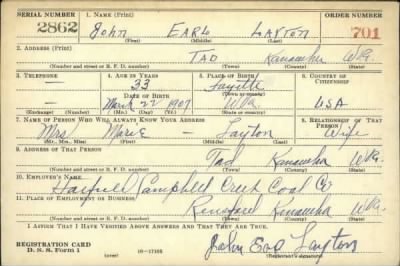 SERIAL NUMBER 1. NAME (Print) ORDER NUMBER
2862 John EARL LAYTON 701
(First) (Middle) (Last)
2. ADDRESS (Print)
TAD Kanawha W.Va.
(Number and street or R. F. D. number) (Town) (County) (State)
3. TELEPHONE 4. AGE IN YEARS 5. PLACE OF BIRTH 6. COUNTRY OF CITIZENSHIP
— 33 Fayette
DATE OF BIRTH (Town or county)
— March 22 1907 W.Va. USA
(Exchange) (Number) (Mo.) (Day) (Yr.) (State or country)
7. NAME OF PERSON WHO WILL ALWAYS KNOW YOUR ADDRESS 8. RELATIONSHIP OF THAT PERSON
Mrs Marie — Layton Wife
(Mr., Mrs., Miss) (First) (Middle) (Last)
9. ADDRESS OF THAT PERSON
Tad Kanawha W.Va.
(Number and street or R. F. D. number) (Town) (County) (State)
10. EMPLOYER'S NAME
Campbell Creek Coal Co
11. PLACE OF EMPLOYMENT OR BUSINESS
Kanawha W.Va.
(Number and street or R. F. D. number) (Town) (County) (State)
I AFFIRM THAT I HAVE VERIFIED ABOVE ANSWERS AND THAT THEY ARE TRUE.
REGISTRATION CARD
D. S. S. Form 1 (over) 16—17105 John Earl Layton
(Registrant's signature)